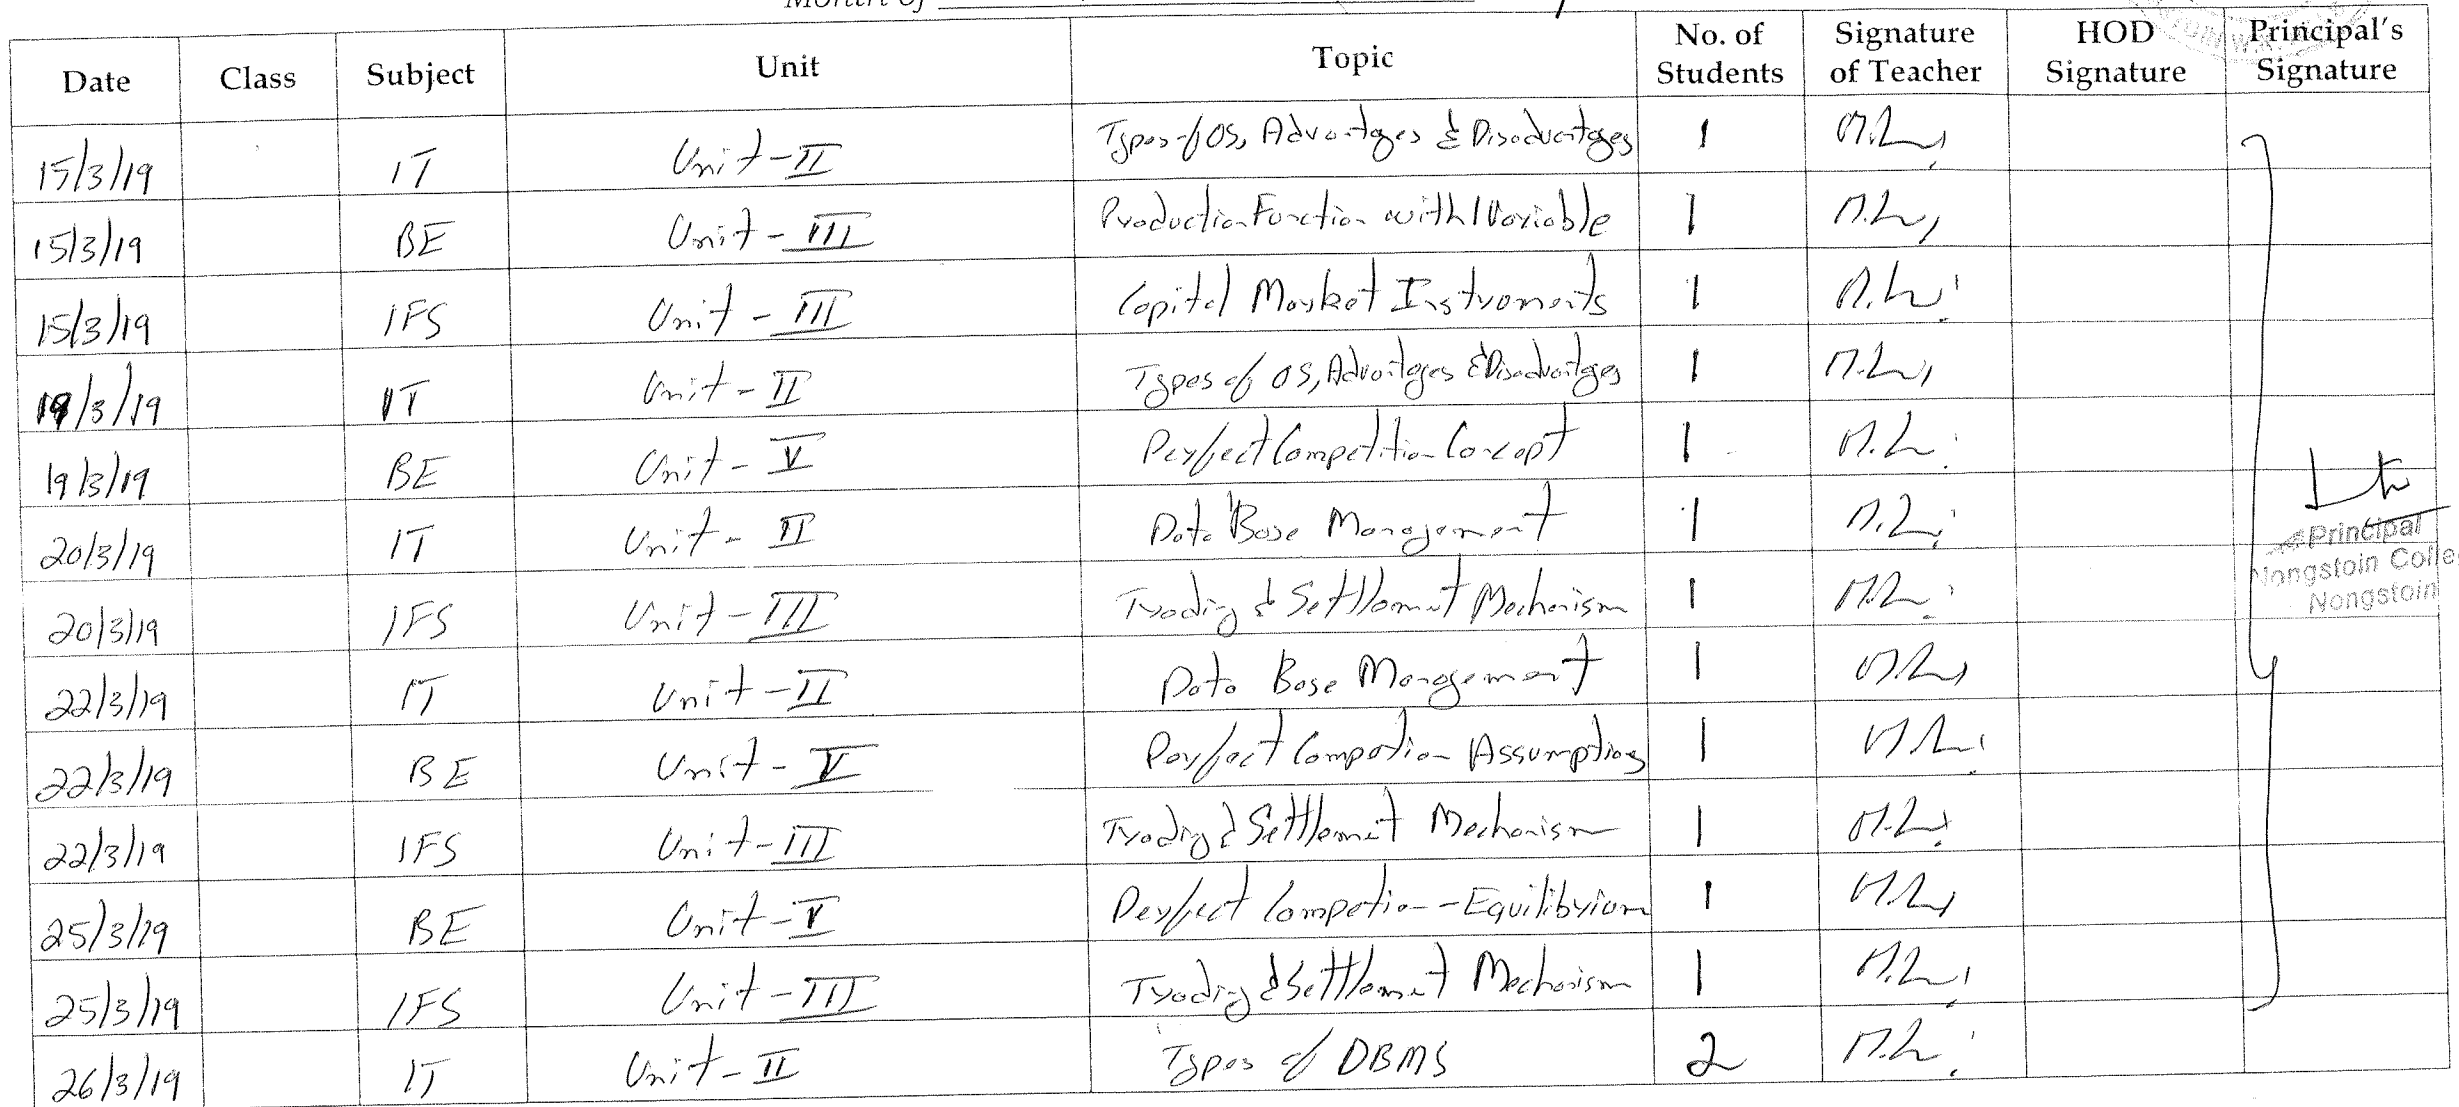 Month of
Date Class Subject Unit Topic No. of Students Signature of Teacher HOD Signature Principal's Signature
15/3/19 IT Unit-II Types of OS, Advantages & Disadvantages 1
15/3/19 BE Unit-III Production Function with 1 Variable 1
15/3/19 IFS Unit-III Capital Market Instruments 1
19/3/19 IT Unit-II Types of OS, Advantages & Disadvantages 1
19/3/19 BE Unit-V Perfect Competition Concept 1
20/3/19 IT Unit-II Data Base Management 1
20/3/19 IFS Unit-III Trading & Settlement Mechanism 1
22/3/19 IT Unit-II Data Base Management 1
22/3/19 BE Unit-V Perfect Compotion Assumptions 1
22/3/19 IFS Unit-III Trading & Settlement Mechanism 1
25/3/19 BE Unit-V Perfect Competion-Equilibrium 1
25/3/19 IFS Unit-III Trading & Settlement Mechanism 1
26/3/19 IT Unit-II Types of DBMS 2
Principal
Nongstoin Colle
Nongstoin